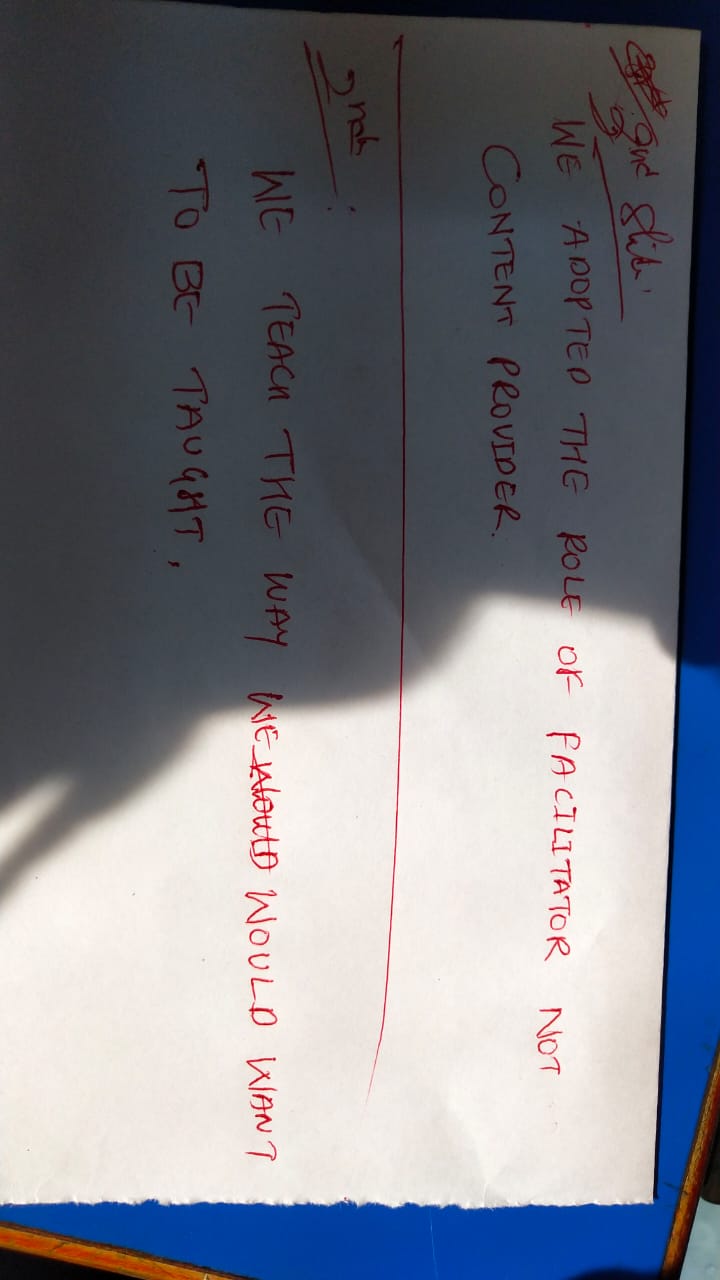 2nd Slide:
WE ADOPTED THE ROLE OF FACILITATOR NOT
CONTENT PROVIDER.
2nd:
WE TEACH THE WAY WE WOULD WOULD WANT
TO BE TAUGHT.